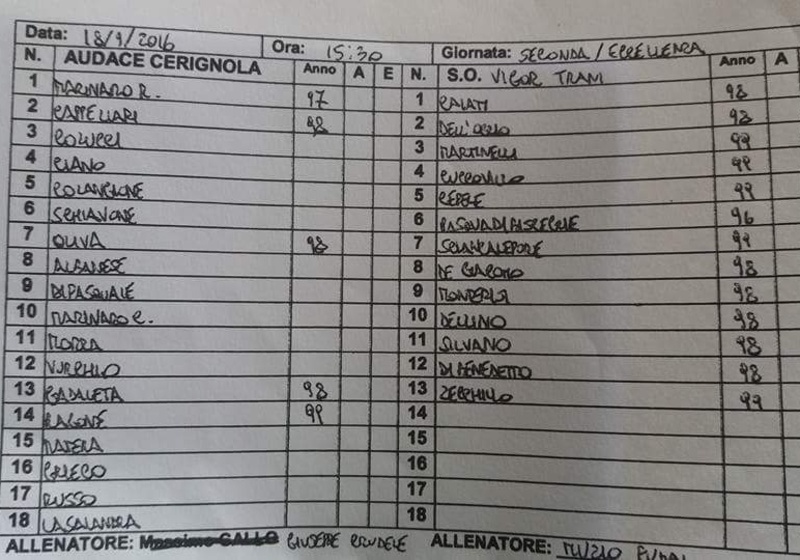 Data: 18/9/2016 Ora: 15:30 Giornata: SECONDA / ECCELLENZA
N. AUDACE CERIGNOLA Anno A E N. S.O. VIGOR TRANI Anno A
1 MARINARO R. 97 1 98
2 CAPPELLARI 98 2 DELL'OGLIO 98
3 COLUCCI 3 MARTINELLI 99
4 CIANO 4 99
5 COLANGIONE 5 99
6 SCHIAVONE 6 PASQUA DI BISCEGLIE 96
7 OLIVA 98 7 SCIANCALEPORE 99
8 ALBANESE 8 98
9 DIPASQUALE 9 98
10 MARINARO C. 10 DELLINO 98
11 MORRA 11 SILVANO 98
12 VURCHIO 12 DI BENEDETTO 98
13 GADALETA 98 13 ZECCHILLO 99
14 RAGONE 99 14
15 MATERA 15
16 GRIECO 16
17 RUSSO 17
18 LASALANDRA 18
ALLENATORE: Massimo GALLO GIUSEPPE ALLENATORE: MUZIO